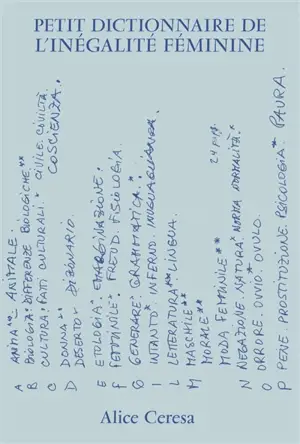 PETIT DICTIONNAIRE DE
L'INÉGALITÉ FÉMININE
A ANIMA** ANIMALE.
B BIOLOGIA* DIFFERENZE BIOLOGICHE**
C CULTURA: FATI CULTURALI. CIVILE. CIVILTÀ.
COSCIENZA.
D DONNA**
DESERTO. DIZIONARIO.
E ETOLOGIA. EMARGINAZIONE.
F FEMMINILE* FREUD. FISIOLOGIA.
G GENERARE. GRAMMATICA.*
I INTANTO* INFERNO. INUGUAGLIANZA.
L LETTERATURA** LINGUA.
M MASCHILE**
MORALE**
MODA FEMMINILE**
N NEGAZIONE. NATURA* NORMA NORMALITÀ.*
O ORRORE. OVVIO*. OVULO.
P PENE. PROSTITUZIONE. PSICOLOGIA* PAURA.
Alice Ceresa